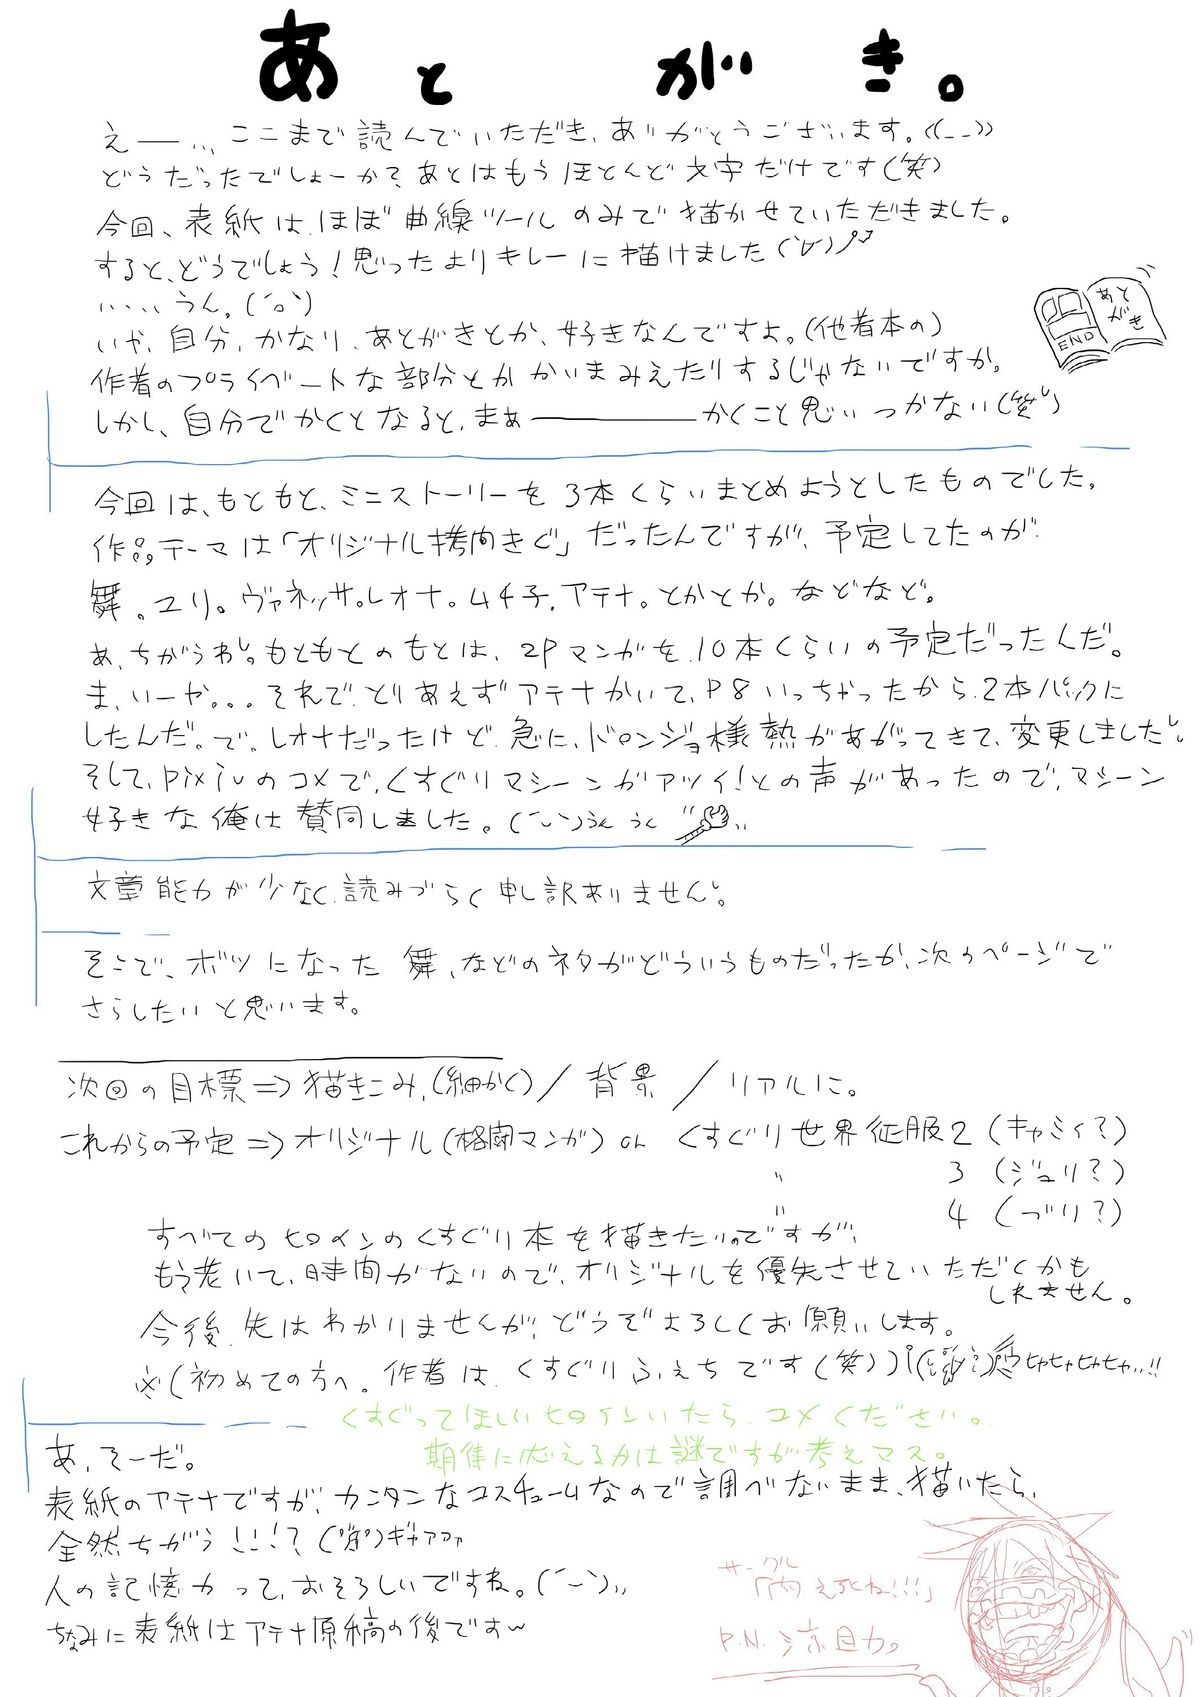 あとがき。
えー… ここまで読んでいただき、ありがとうございます。((_ _))
どうだったでしょーか？あとはもうほとんど文字だけです(笑)
今回、表紙は、ほぼ曲線ツールのみで描かせていただきました。
すると、どうでしょう！思ったよりキレーに描けました(´∀`)
……うん。(´o`)
いや、自分、かなり、あとがきとか、好きなんですよ。(他者本の)
作者のプライベートな部分とかかいまみえたりするじゃないですか。
しかし、自分でかくとなると、まぁ――――かくこと思いつかない(笑)
あとがき
END
今回は、もともと、ミニストーリーを3本くらいまとめようとしたものでした。
作品テーマは「オリジナル拷問きぐ」だったんですが、予定してたのが
舞。ユリ。ヴァネッサ。レオナ。ムチ子。アテナ。とかとか。などなど。
あ、ちがうわ。もともとのもとは、2Pマンガを、10本くらいの予定だったんだ。
ま、いーや。。。それで、とりあえずアテナかいて、P8いっちゃったから、2本パックに
したんだ。で。レオナだったけど、急に、ドロンジョ様熱があがってきて、変更しました。
そして、pixivのコメで、くすぐりマシーンがアツイ！との声があったので、マシーン
好きな俺は賛同しました。(´ー`)うん うん
文章能力が少なく、読みづらく申し訳ありません。
そこで、ボツになった 舞、などのネタがどういうものだったか、次のページで
さらしたいと思います。
次回の目標⇒描きこみ、(細かく)／背景／リアルに。
これからの予定⇒オリジナル(格闘マンガ) or くすぐり世界征服2 (キャミィ？)
〃 3 (ジュリ？)
〃 4 (づり？)
すべてのヒロインのくすぐり本を描きたいのですが、
もう老いて、時間がないので、オリジナルを優先させていただくかも
しれません。
今後、先はわかりませんが、どうぞよろしくお願いします。
※(初めての方へ。作者は、くすぐりふぇちです(笑)) ヒャヒャヒャヒャ…!!
くすぐってほしいヒロインいたら、コメください。
期待に応えるかは謎ですが考えマス。
あ、そーだ。
表紙のアテナですが、カンタンなコスチュームなので調べないまま、描いたら、
全然ちがう!!!？ギャアァァ
人の記憶力って、おそろしいですね。(´ー`)…
ちなみに表紙はアテナ原稿の後です〜
サークル
P.N.